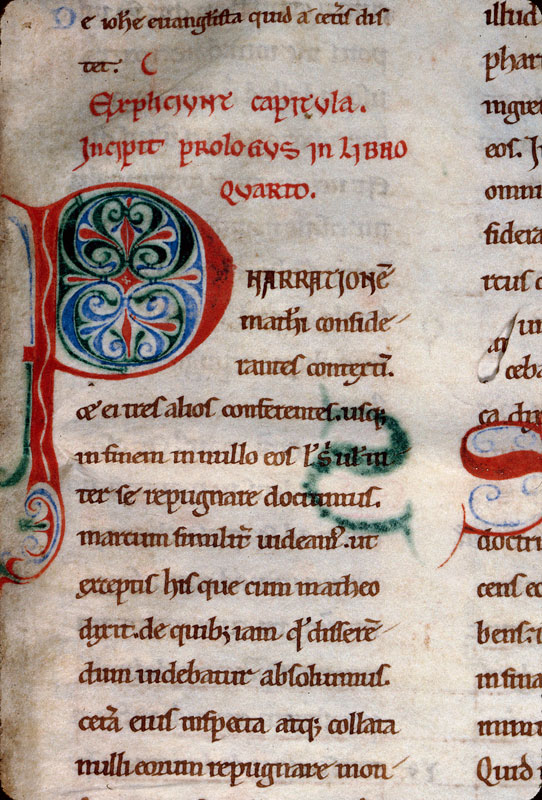 De ioħe euangłista quid a cet̃is dis
tet.
Expliciunt capitula.
Incipit prologus in libro
quarto.
P NARRATIONẼ
mathi conside
rantes contextũ.
cẽ ei tres alios conferentes. usq;
in finem in nullo eos
ter se repugnare docuimus.
marcum similit̃ uideam᷒. ut
exceptis his que cum matheo
dixit. de quib; iam differẽ
dum uidebatur absoluimus.
cet̃a eius inspecta atq; collata
nulli eorum repugnare mon
illud
phari
ingre
eos.
omni
sidera
ceba
ca. dix
S
doctri
cens eo
bens:
in fina
Quid